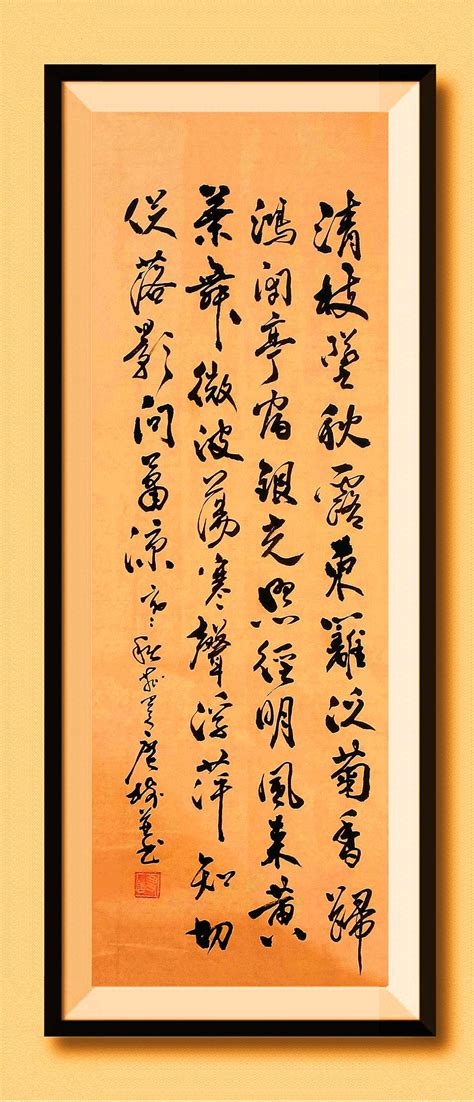 清枝墜秋露東籬泛菊香歸
鴻闲亭宿銀光照徑明風来黄
葉舞微波蕩寒聲浮萍知切
促落影问萧凉